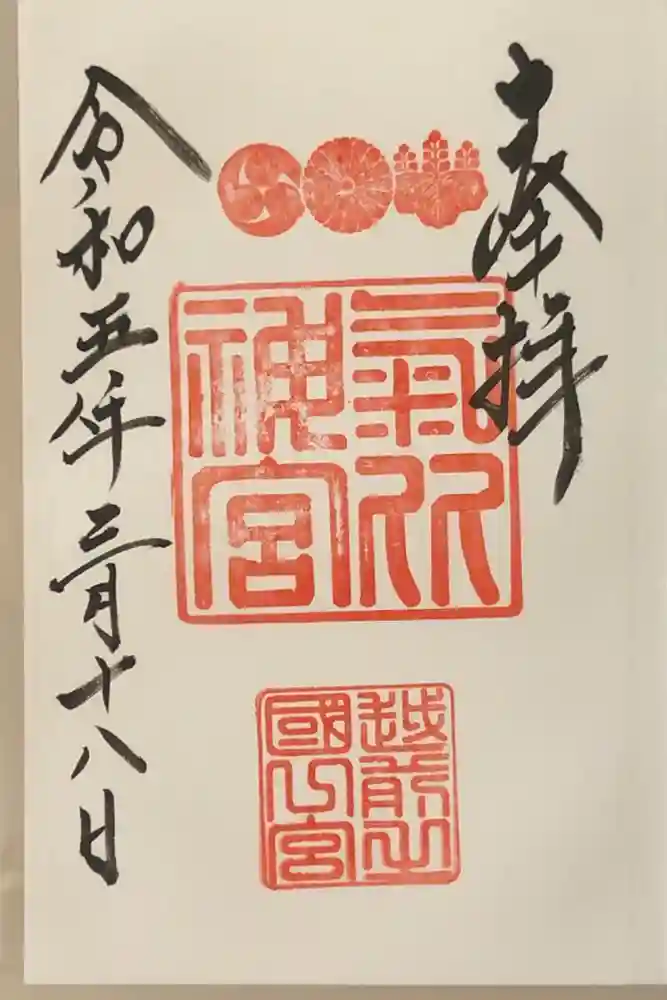 奉拝
氣比
神宮
越前之
國一宮
令和五年三月十八日